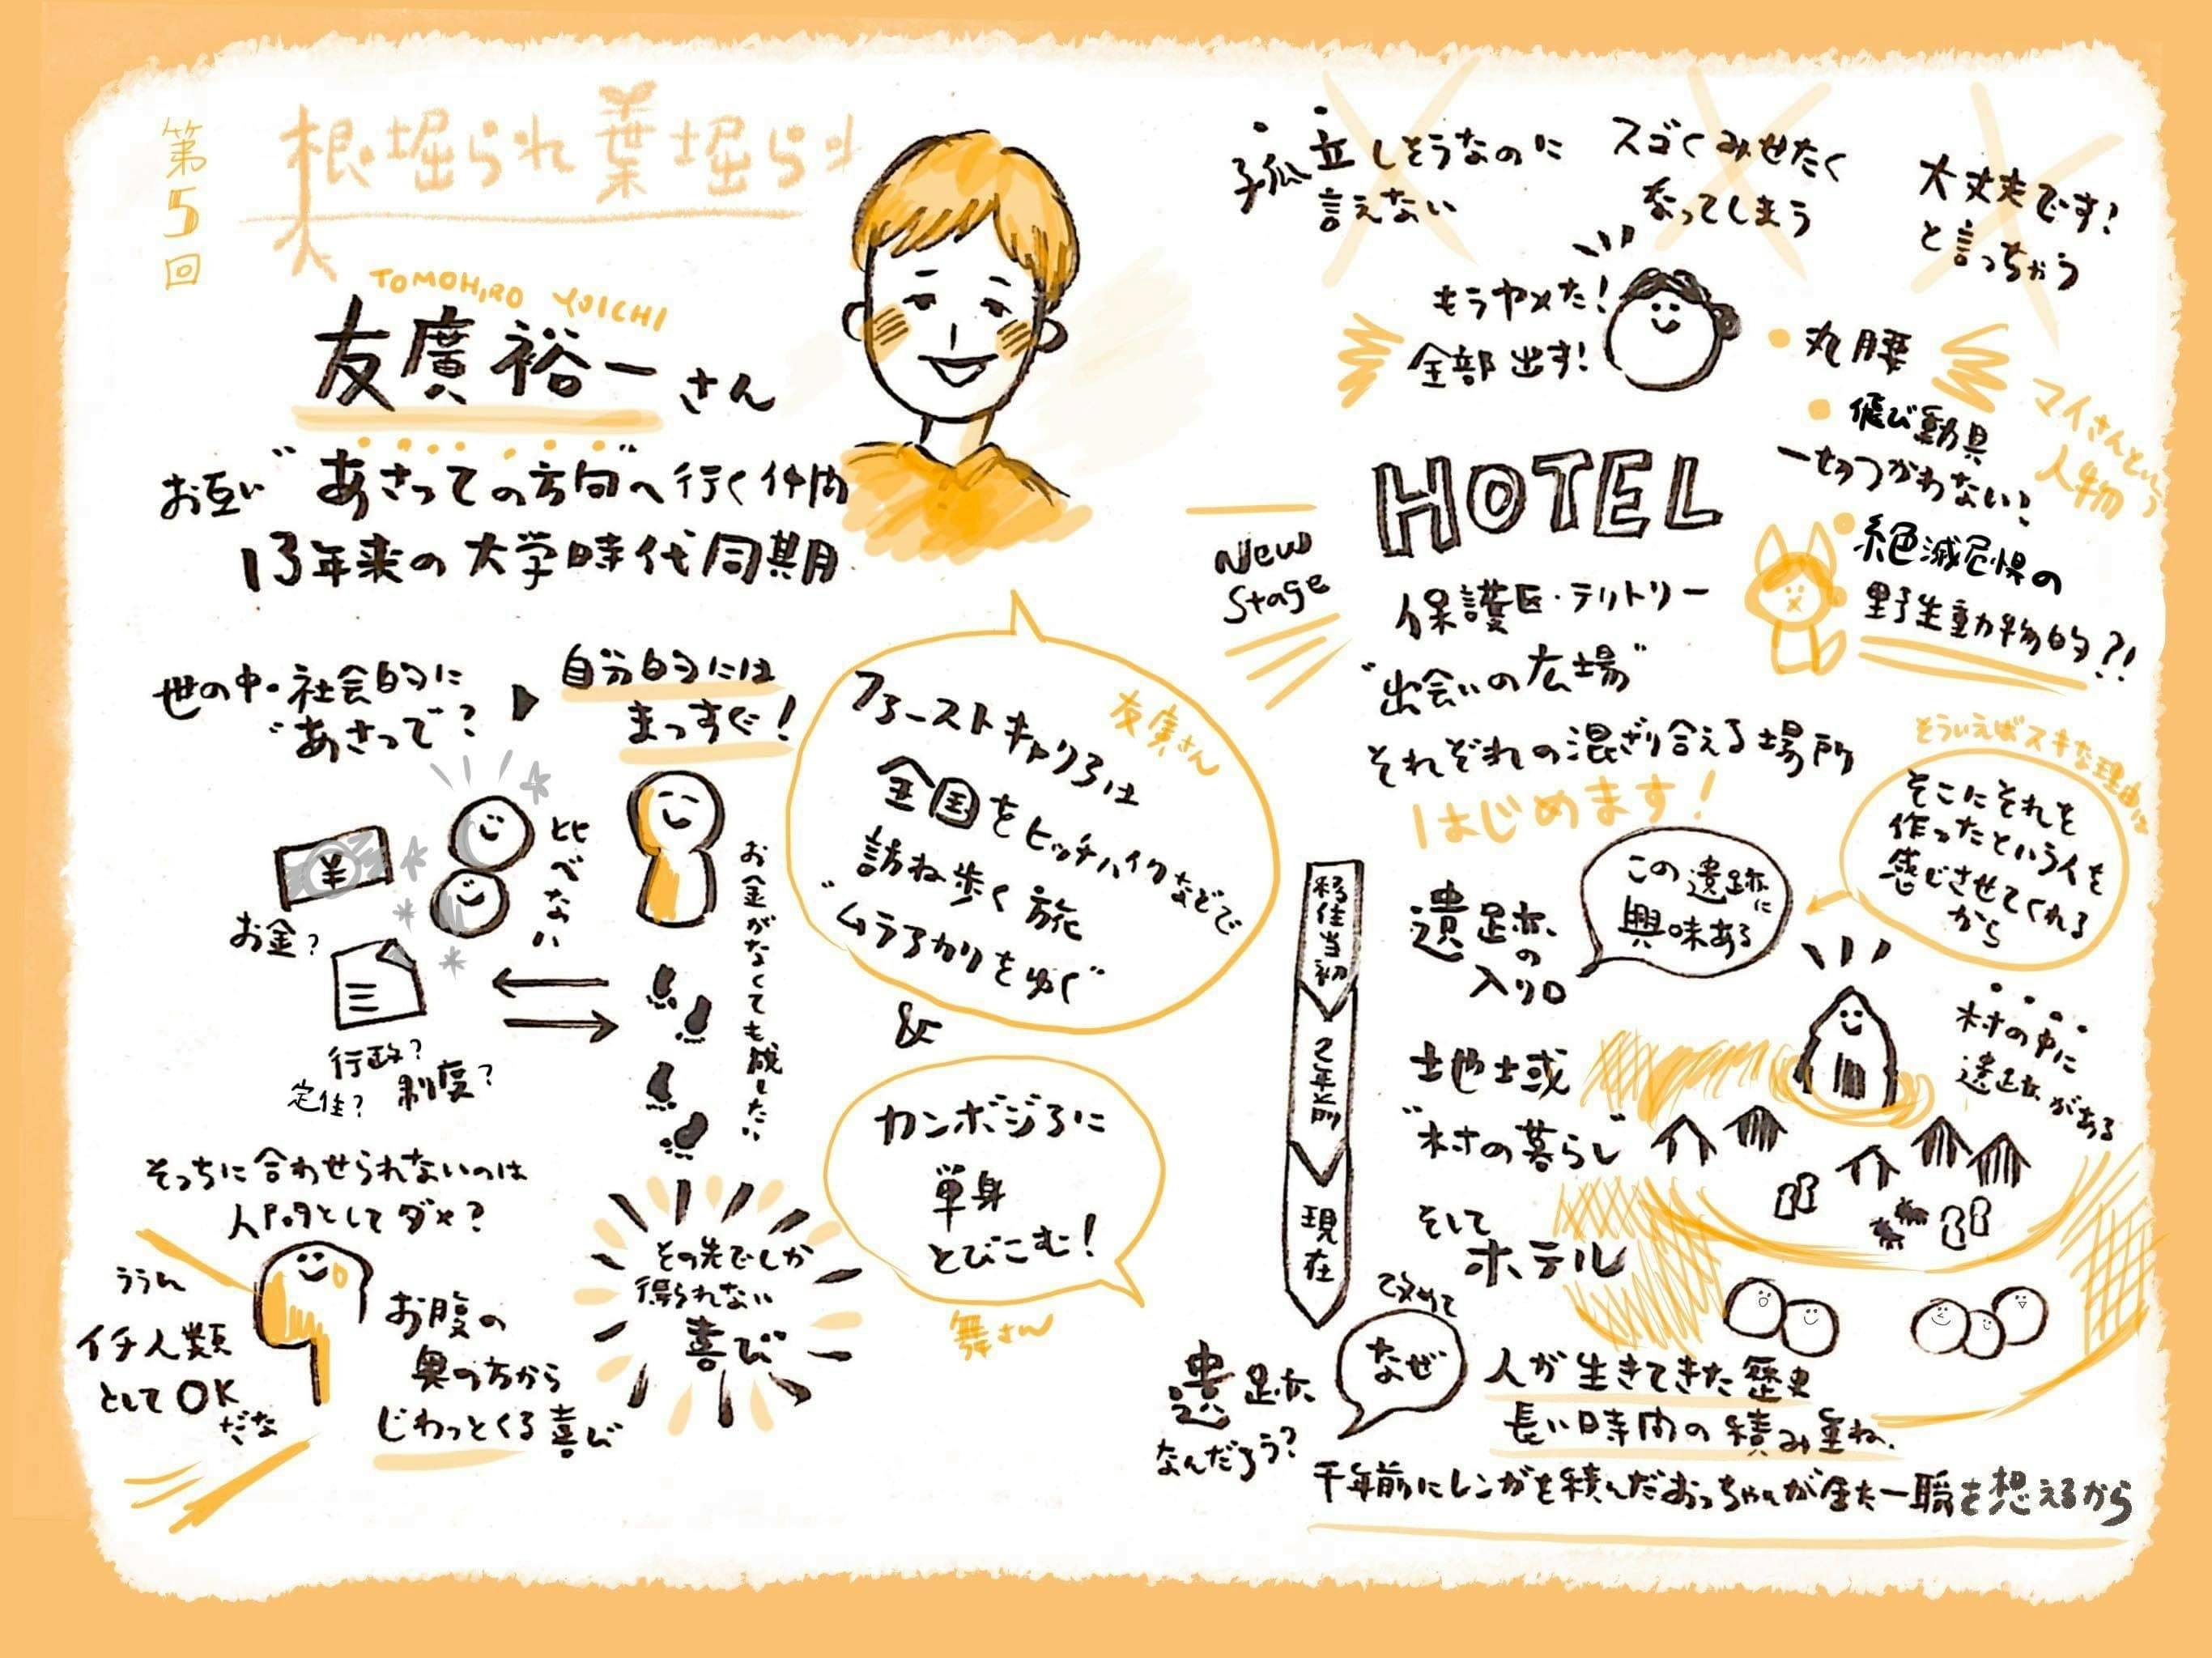 第5回
根堀られ葉堀られ
TOMOHIRO YUICHI
友廣裕一さん
お互い"あさっての方向"へ行く仲間
13年来の大学時代同期
世の中・社会的に
"あさって"?
自分的には
まっすぐ!
お金?
行政?
定住? 制度?
比べない
お金がなくても成したい
そっちに合わせられないのは
人間としてダメ?
ううん
イチ人類
としてOK
だな
お腹の
奥の方から
じわっとくる喜び
その先でしか
得られない
喜び
友廣さん
ファーストキャリアは
全国をヒッチハイクなどで
訪ね歩く旅
"ムラアカリをゆく"
&
カンボジアに
単身
とびこむ!
舞さん
孤立しそうなのに
言えない
スゴくみせたく
なってしまう
大丈夫です!
と言っちゃう
もうヤメた!
全部出す!
丸腰
飛び動具
一切つかわない!
絶滅危惧の
野生動物的?!
マイさんという
人物
New
Stage
HOTEL
保護区・テリトリー
"出会いの広場"
それぞれの混ざり合える場所
はじめます!
そういえばスキな理由は
そこにそれを
作ったという人を
感じさせてくれる
から
移住当初
2年前
現在
遺跡
の
入り口
この遺跡に
興味ある
村の中に
遺跡がある
地域
"村の暮らし"
そして
ホテル
改めて
なぜ
遺跡
なんだろう?
人が生きてきた歴史
長い時間の積み重ね、
千年前にレンガを積んだおっちゃんが生きた一瞬を想えるから